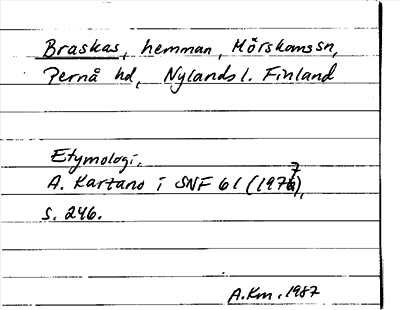 Braskas, hemman, Mörskomssn,
Pernå hd, Nylands l. Finland
Etymologi.
A. Kartano i SNF 61 (1977),
s. 246.
A.Km. 1987